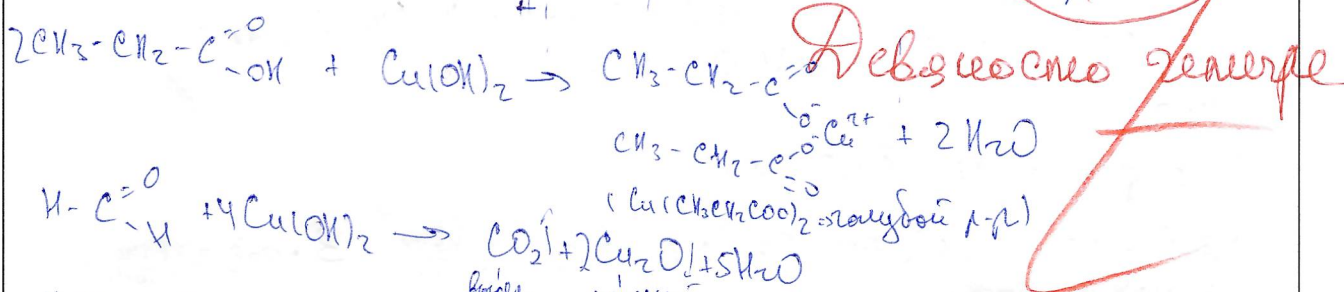 2CH₃-CH₂-C=O -OH + Cu(OH)₂ → CH₃-CH₂-C=O Девяносто четыре
O⁻
CH₃-CH₂-C-O⁻ Cu²⁺ + 2H₂O
=O
(Cu(CH₃CH₂COO)₂ - голубой р-р)
H-C=O -H +4Cu(OH)₂ → CO₂↑+2Cu₂O↓+5H₂O